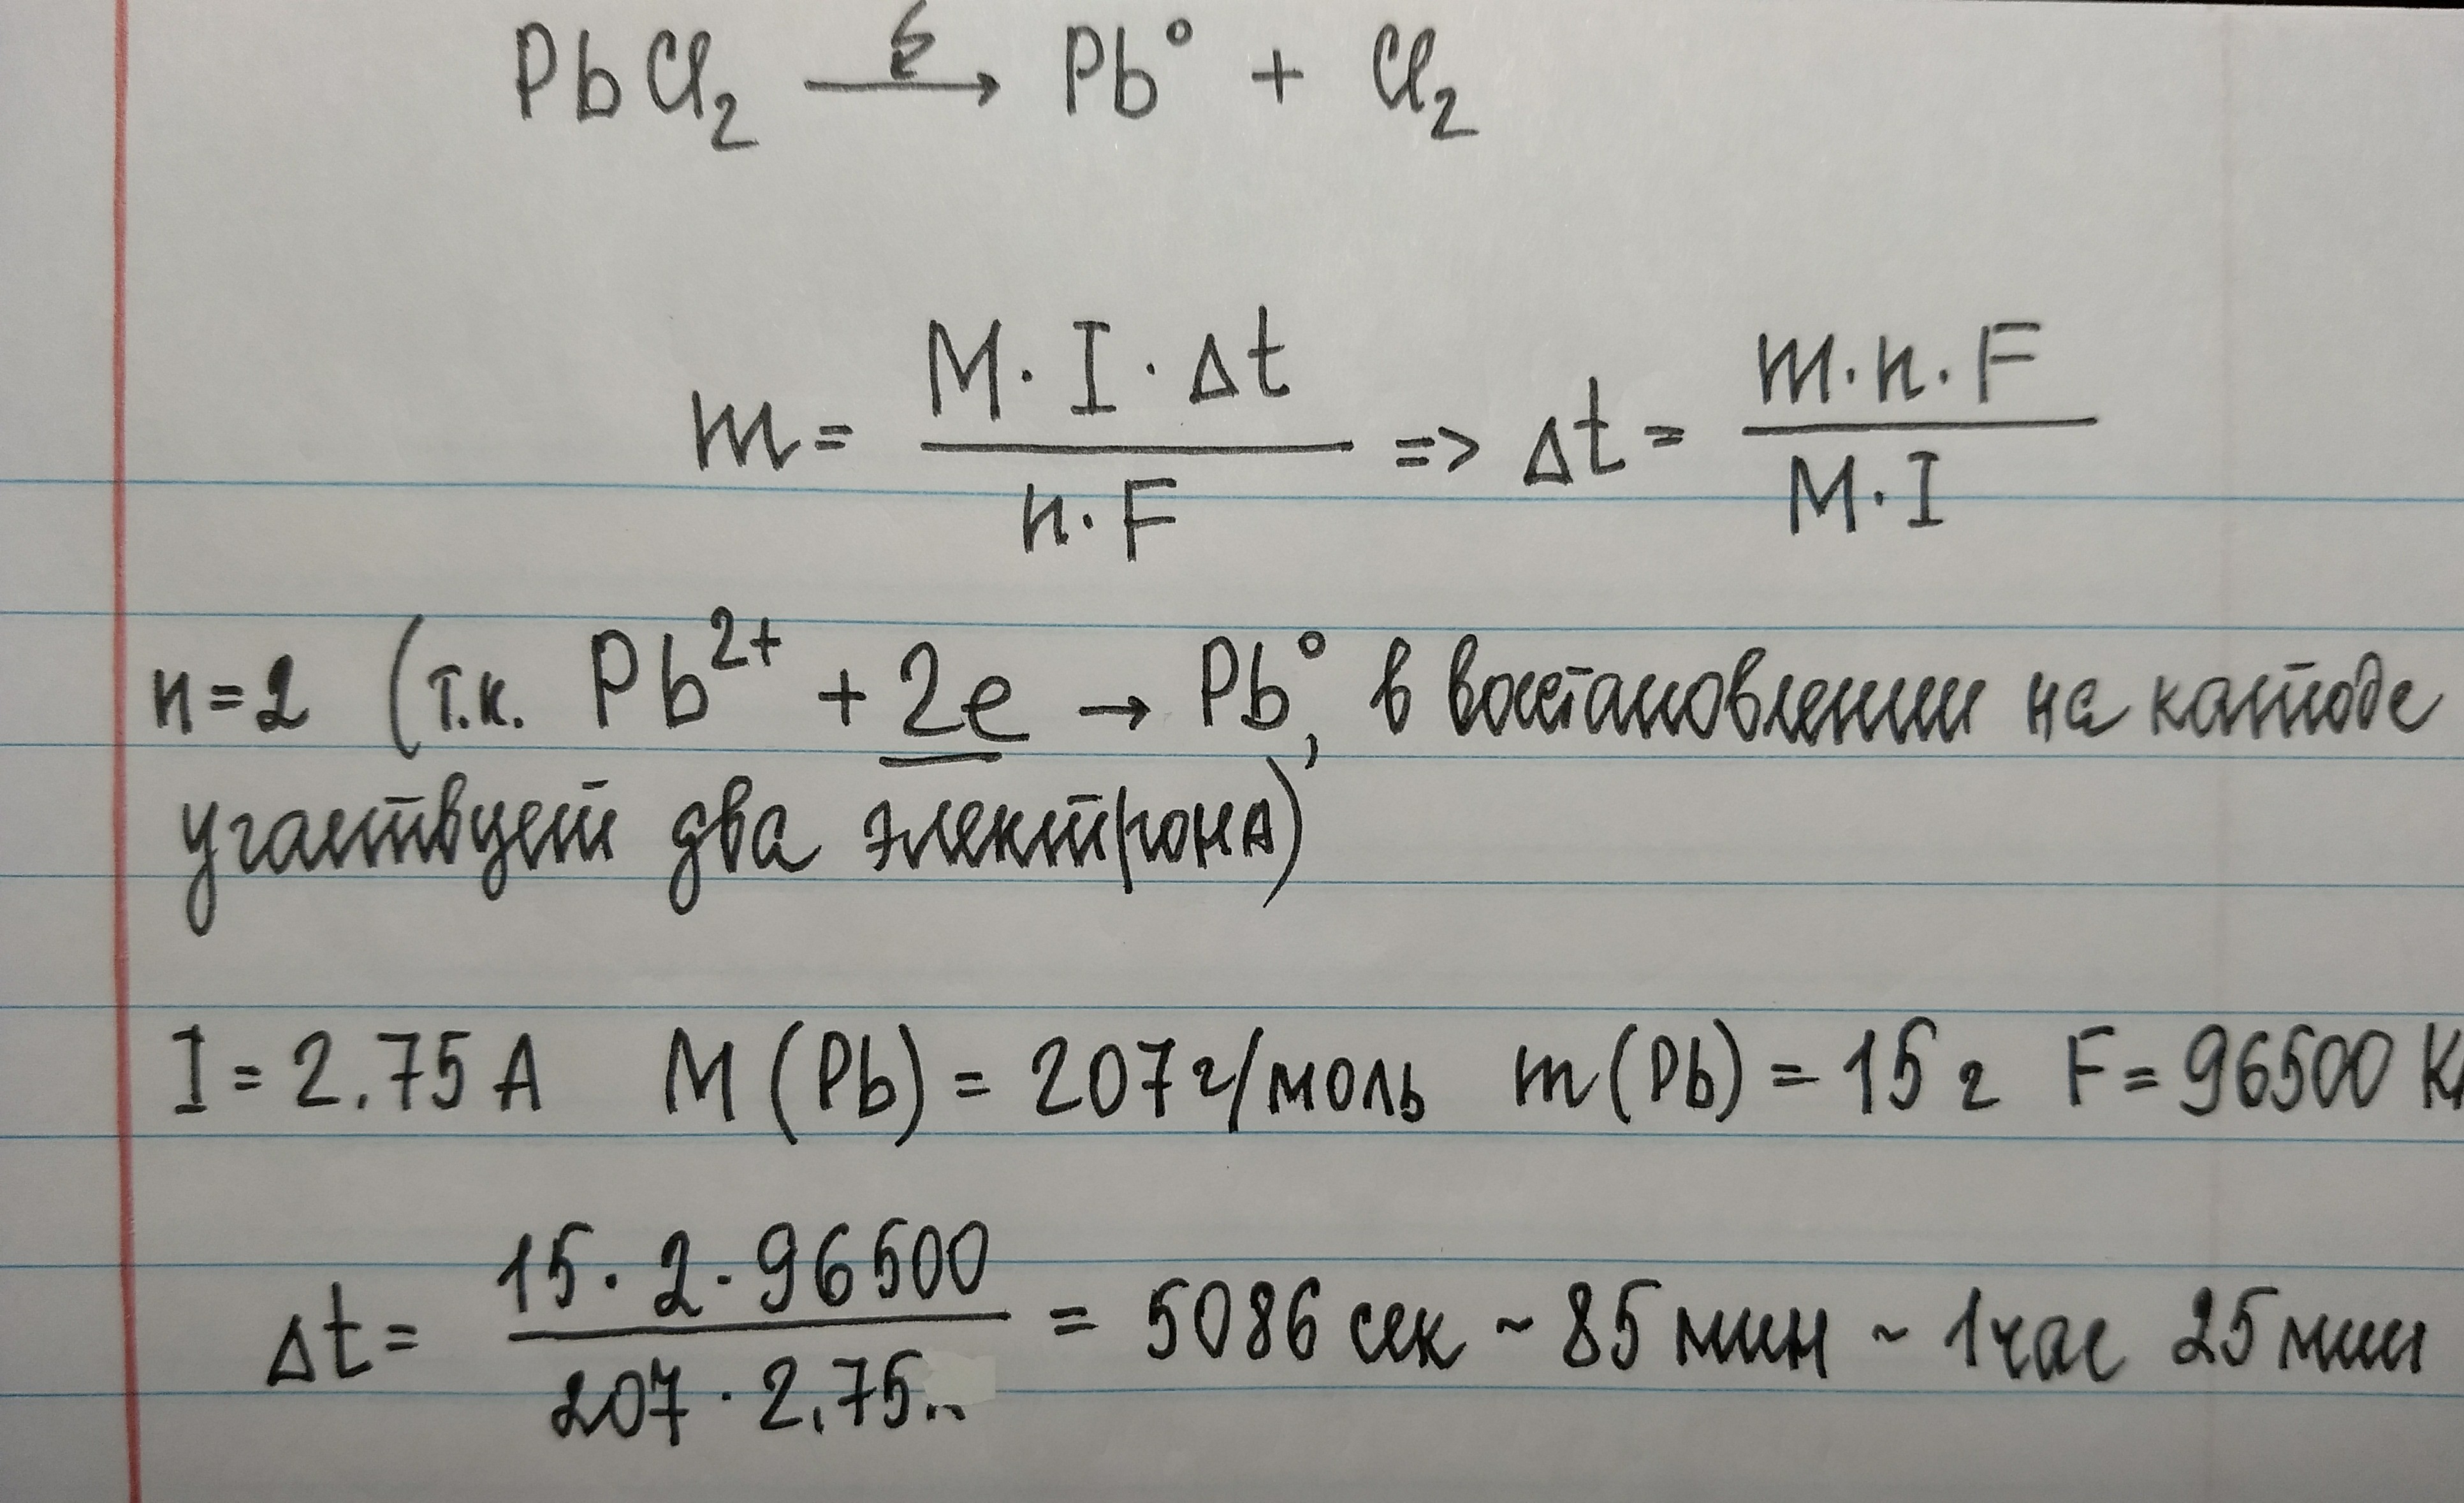 PbCl₂ → Pb° + Cl₂
m = M·I·Δt / n·F => Δt = m·n·F / M·I
n=2 (т.к. Pb²⁺ + 2e → Pb°, в восстановлении на катоде
участвует два электрона)
I = 2.75 A M(Pb) = 207 г/моль m(Pb) = 15 г F = 96500 К
Δt = 15·2·96500 / 207·2.75 = 5086 сек ~ 85 мин ~ 1 час 25 мин